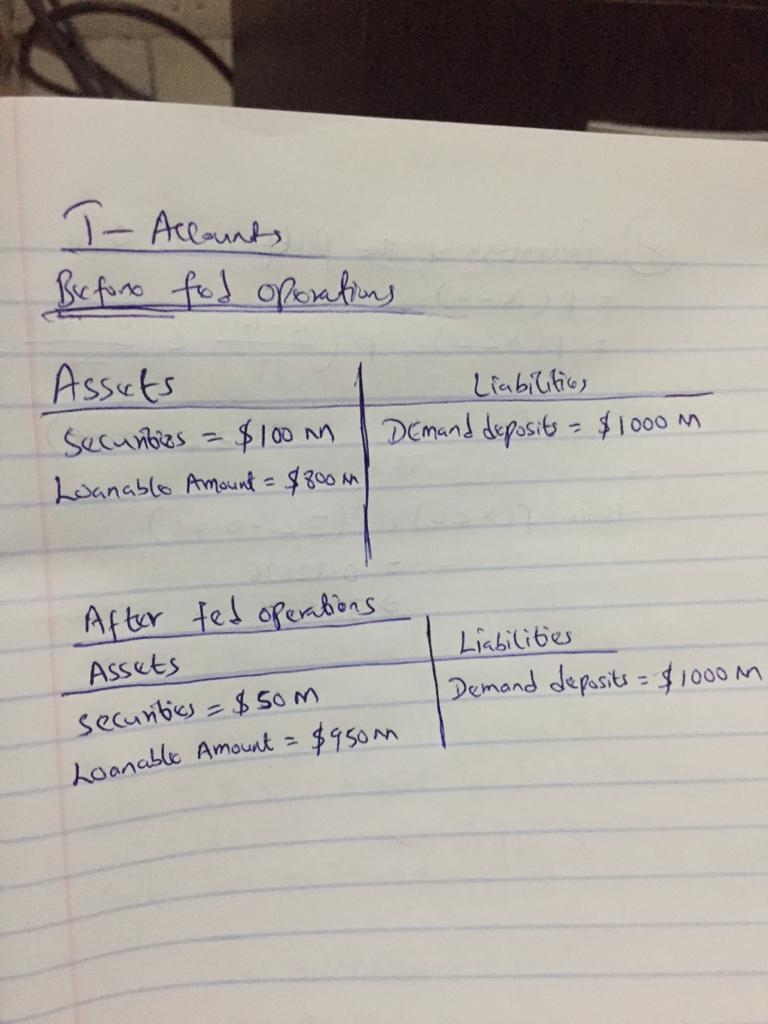 T- Accounts
Before fed operations
Assets
Liabilities
Securities = $100 M
Demand deposits = $1000 M
Loanable Amount = $800 M
After fed operations
Assets
Liabilities
Securities = $50 M
Demand deposits = $1000 M
Loanable Amount = $950 M